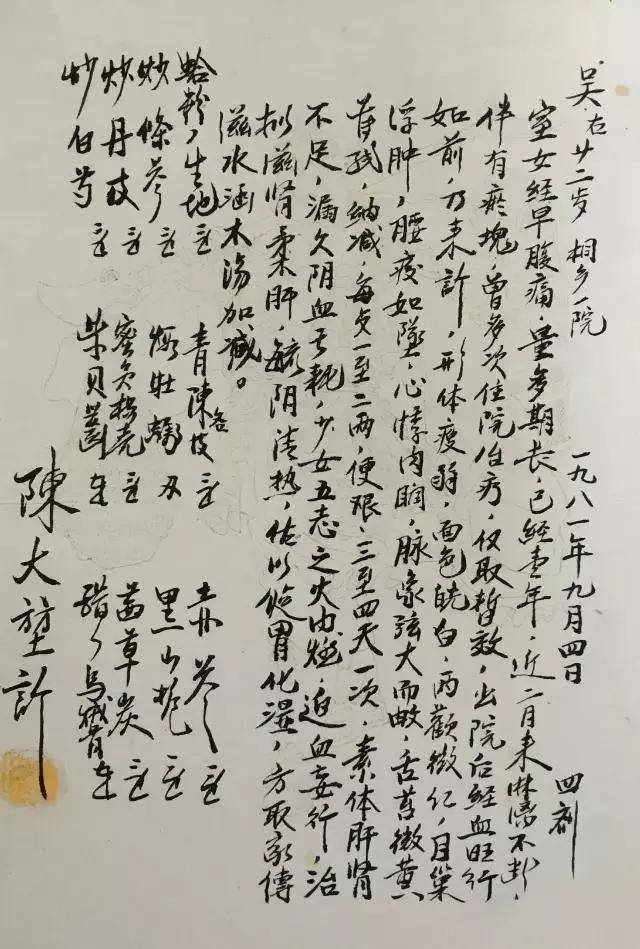 吴右 廿二岁 桐乡一院 一九八一年九月四日 四剂
室女经早腹痛，量多期长，已经壹年，近二月来淋漓不断，
伴有瘀块，曾多次住院治疗，仅取暂效，出院后经血旺行
如前，乃来诊，形体疲弱，面色㿠白，两颧微红，目窠
浮肿，腰疫如墜，心悸肉瞤，脉象弦大而芤，舌苔微黄
苔残，纳减，每女一至二两，便艰，三至四天一次，素体肝肾
不足，漏久阴血亏耗，少女五志之火内燃，迫血妄行，治
拟滋肾柔肝，毓阴清热，佐以和胃化湿，方取家傳
滋水涵木汤加减。
蛤粉ノ生地 青陈各 赤苓
炒條芩 煅牡蛎 黑山栀
炒丹皮 蜜炙椿壳 茜草炭
炒白芍 紫贝齿 醋ノ乌贼骨
陳大堃診